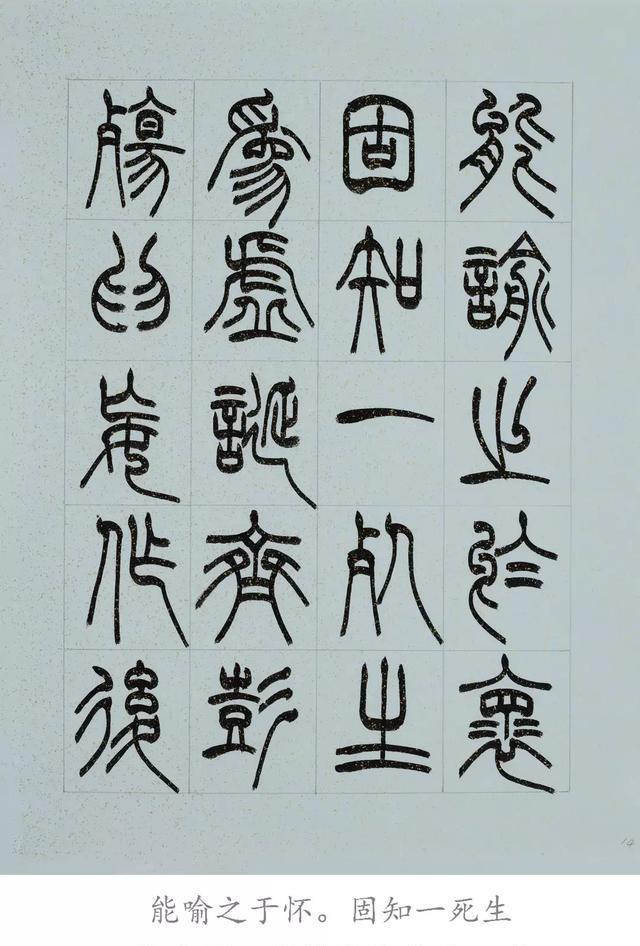 能諭之於褱
固知一死生
為虛誕齊彭
殤為妄作後
14
能喻之于怀。固知一死生